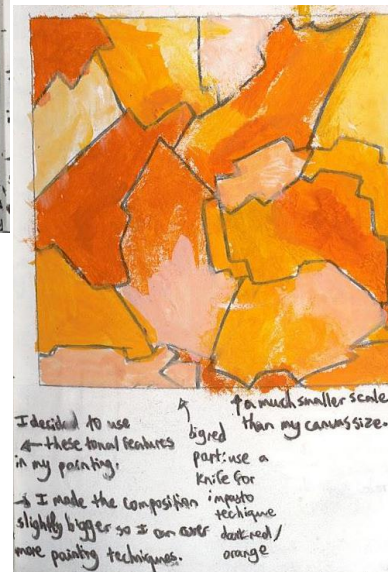 I decided to use
← these tonal features
in my painting.
→ I made the composition
slightly bigger so I can cover
more painting techniques.
big red
part: use a
knife for
impasto
techique
dark red/
orange
↑ a much smaller scale
than my canvas size.